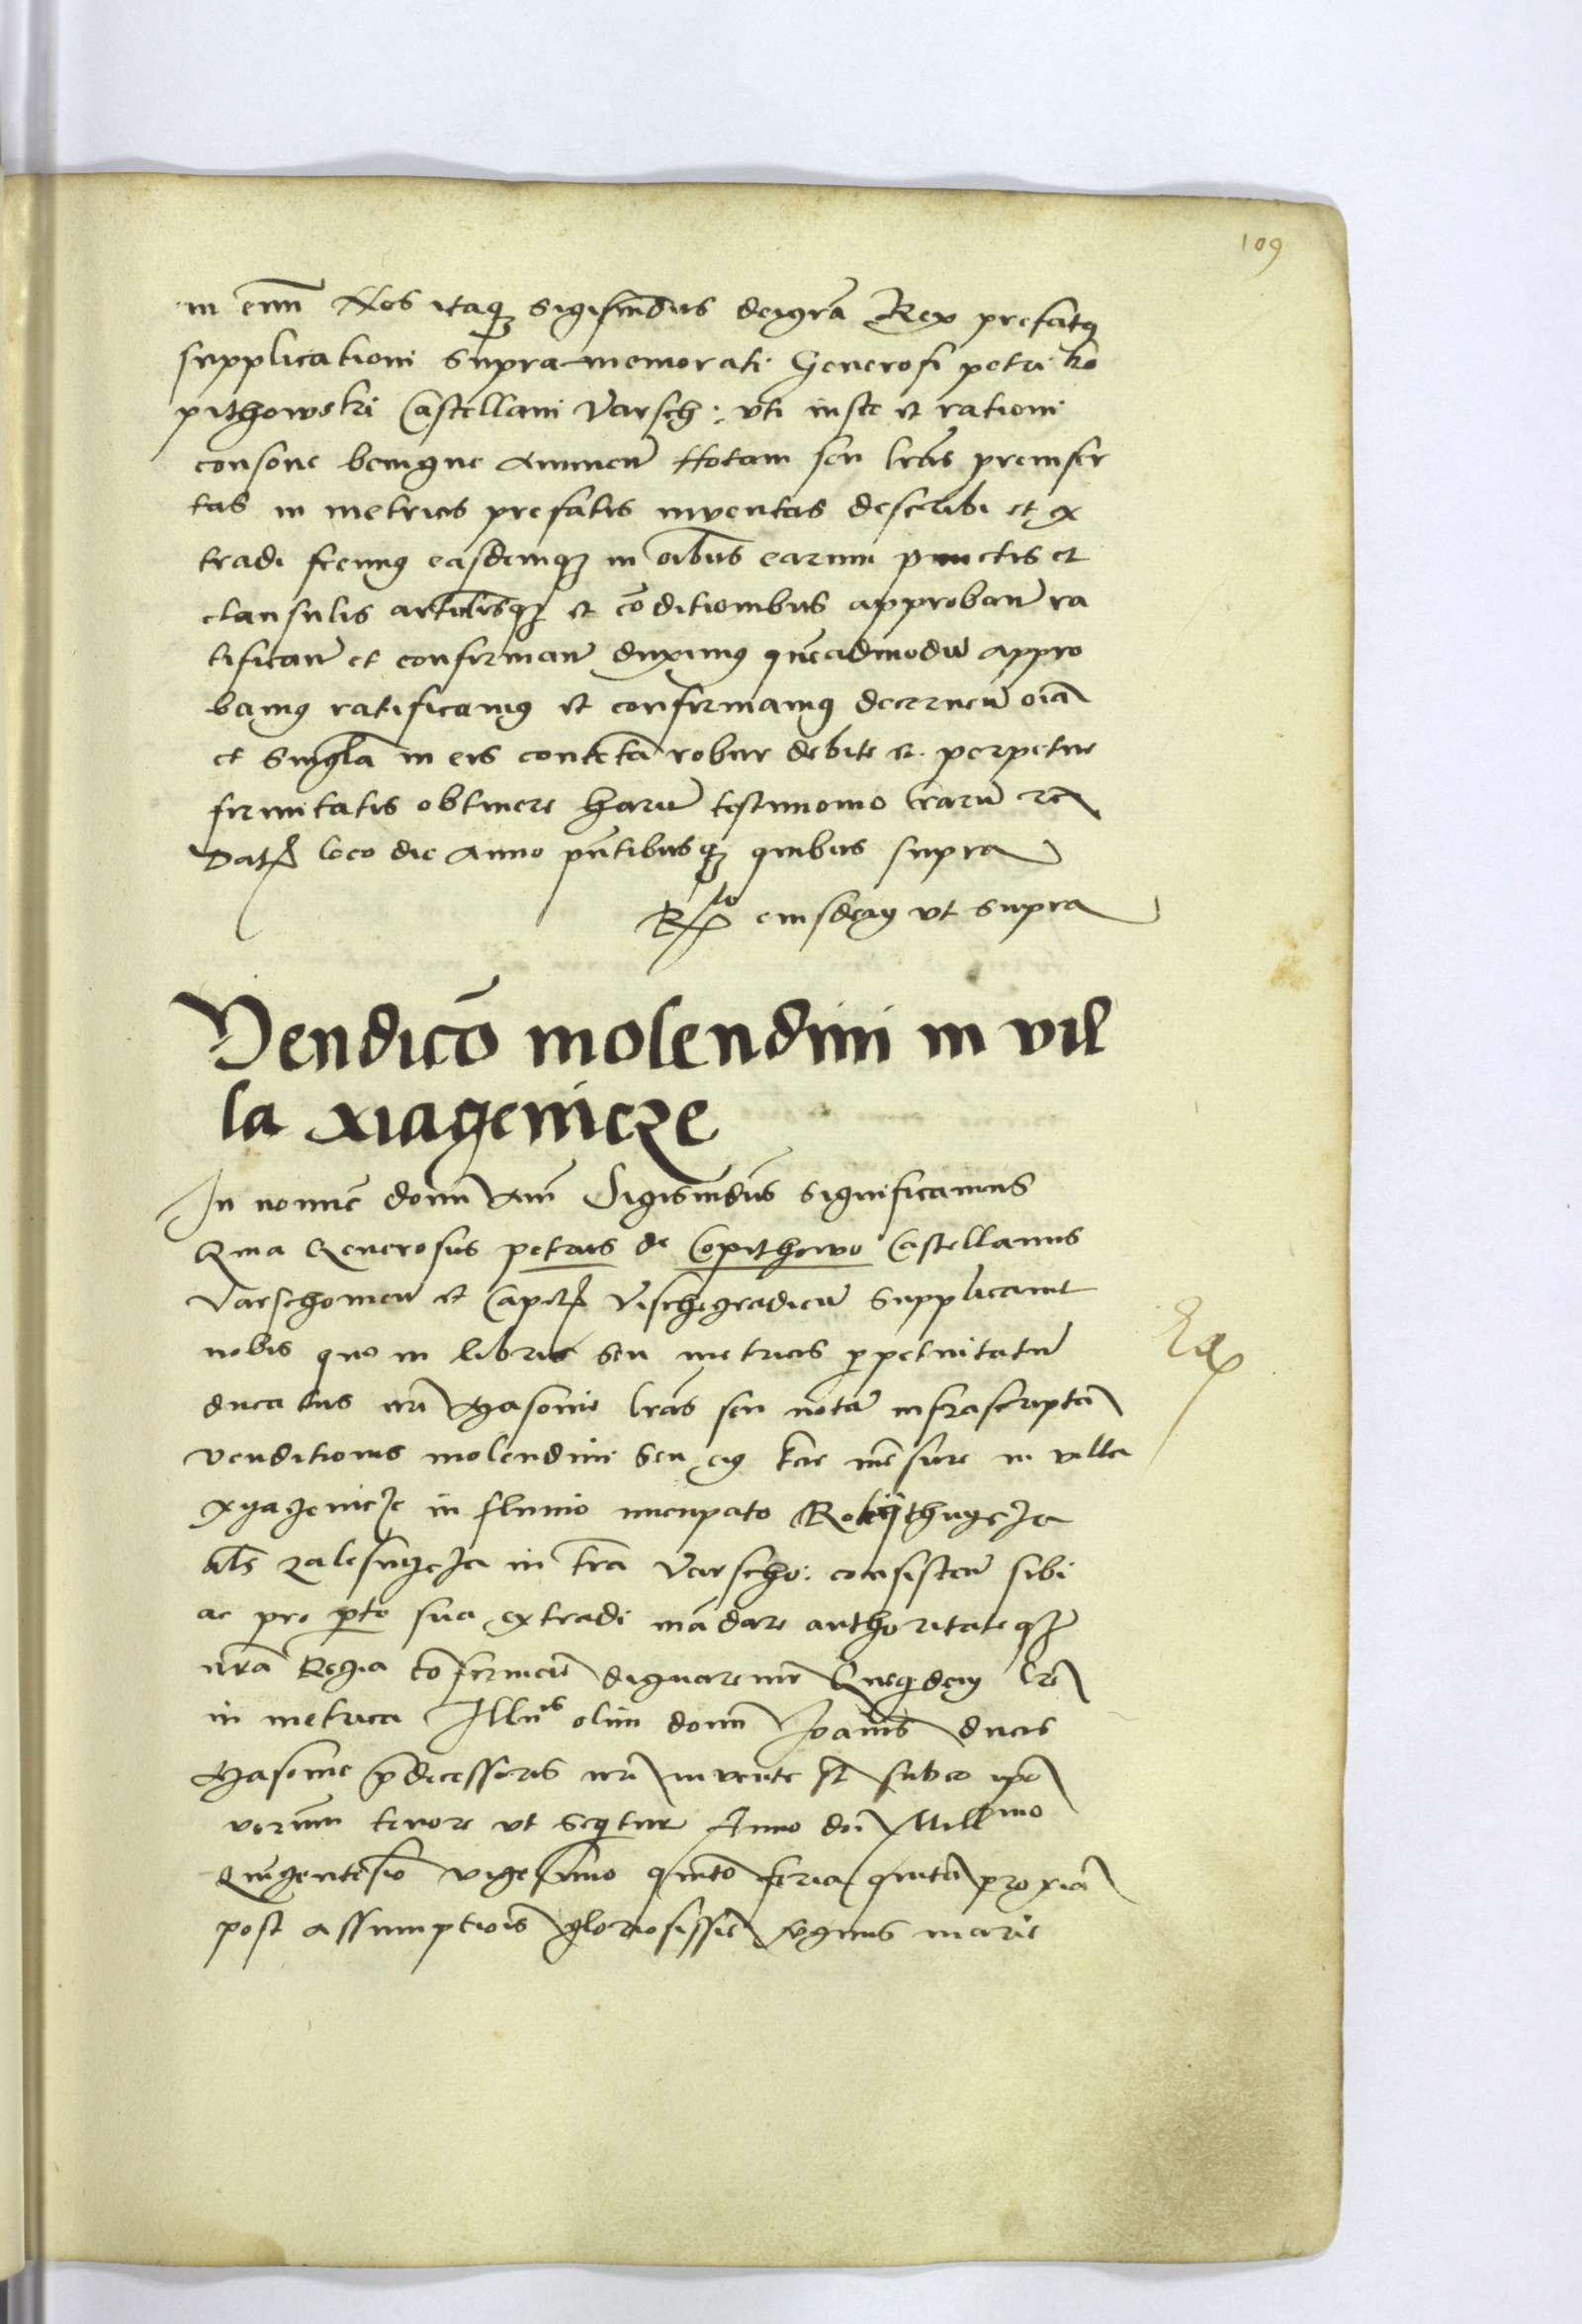 109
in eum Nos itaq3 Sigismūdus deigrā Rex prefatꝰ
supplicationi supra memorati Generosi petri ko
pithowski Castellani Varsch: vti iuste et rationi
consone benigne annueñ Notam seu lrās preinser
tas in metricis prefatis inventas describi et ex
tradi fecimꝰ easdemq3 in oībus earum punctis et
clausulis artīlisq3 et cōditionibus approbanᷓ ra
tificanᷓ et confirmanᷓ duximꝰ quēadmodū appro
bamꝰ ratificamꝰ et confirmamꝰ decerneñ oīa
et singl̄a in eis contēta robur debite et perpetue
firmitatis obtinere harū testimonio lrarū rē
Datꝭ loco die anno pn̄tibusq3 quibus supra
Rᵗᵒ eiusdem vt supra
Vendicō molendini in vil
la xiagenicze
In nomīe domī Am̄ Sigismūdus significamus
Quia Generosus petrus de Copithowo Castellanus
Varschovieñ et Capitꝭ Vischegradieñ supplicavit
nobis quo in libris seu metricis ꝑpetuitatū
ducatus nrī Masovie lrās seu notā infrascriptā
venditionis molendini seu eiꝰ tcie mēsure in villa
xyazenicze in fluvio nuncupato Rokythnycza
als zalesnycza in trā Varscho: consisteñ sibi
ac pro pte sua extradi mādare authoritateq3
nrā Regia cōfirmare dignaremur Quequidem lrē
in metrica Illuīs olim domī Joannis ducis
Masovie p̄decessoris nrī invente st̄ sub eo ipō
verum tenore vt seqitur Anno dn̄i Millmo
Quīgentesīo vigesimo quīto feria quinta proxīa
post assumptiōis gloriosissīe vīginis marie